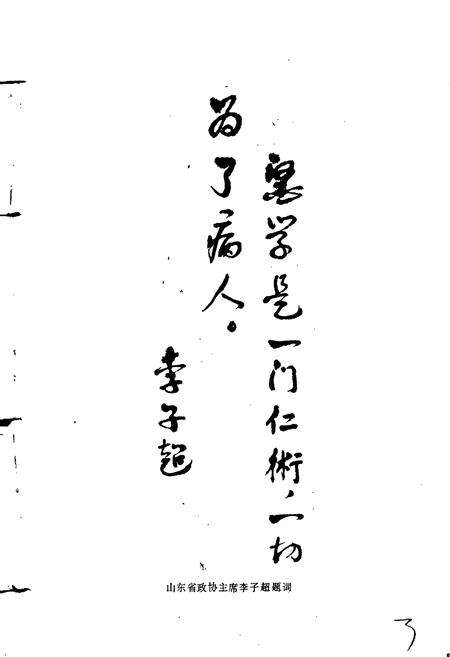 醫学是一门仁術，一切
为了病人。
李子超
山东省政协主席李子超题词
3